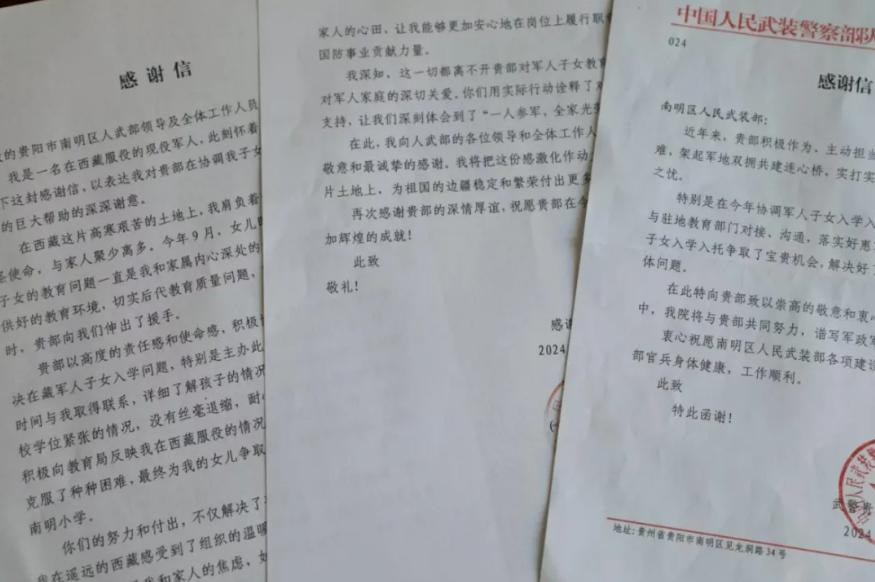 感谢信
的贵阳市南明区人武部领导及全体工作人员
我是一名在西藏服役的现役军人，此刻怀着
下这封感谢信，以表达我对贵部在协调我子女
的巨大帮助的深深谢意。
在西藏这片高寒艰苦的土地上，我肩负着
使命，与家人聚少离多。今年9月，女儿
子女的教育问题一直是我和家属内心深处的
供好的教育环境，切实后代教育质量问题，
时，贵部向我们伸出了援手。
贵部以高度的责任感和使命感，积极
决在藏军人子女入学问题，特别是主办此
时间与我取得联系，详细了解孩子的情况
校学位紧张的情况，没有丝毫退缩，耐
积极向教育局反映我在西藏服役的情况
克服了种种困难，最终为我的女儿争取
南明小学。
你们的努力和付出，不仅解决了
我在遥远的西藏感受到了组织的温暖
我和家人的焦虑，
家人的心田，让我能够更加安心地在岗位上履行职
国防事业贡献力量。
我深知，这一切都离不开贵部对军人子女教育
对军人家庭的深切关爱。你们用实际行动诠释了对
支持，让我们深刻体会到了“一人参军，全家光荣
在此，我向人武部的各位领导和全体工作人
敬意和最诚挚的感谢。我将把这份感激化作动
片土地上，为祖国的边疆稳定和繁荣付出更多
再次感谢贵部的深情厚谊，祝愿贵部在今
加辉煌的成就！
此致
敬礼！
感谢
2024
中国人民武装警察部队
024
感谢信
南明区人民武装部：
近年来，贵部积极作为、主动担当
难，架起军地双拥共建连心桥，实打实
之忧。
特别是在今年协调军人子女入学入
与驻地教育部门对接、沟通，落实好惠
子女入学入托争取了宝贵机会，解决好了
体问题。
在此特向贵部致以崇高的敬意和衷心
中，我院将与贵部共同努力，谐写军政军
衷心祝愿南明区人民武装部各项建设
部官兵身体健康，工作顺利。
此致
特此函谢！
中国人民武装警
武警
2024
地址：贵州省贵阳市南明区见龙洞路34号